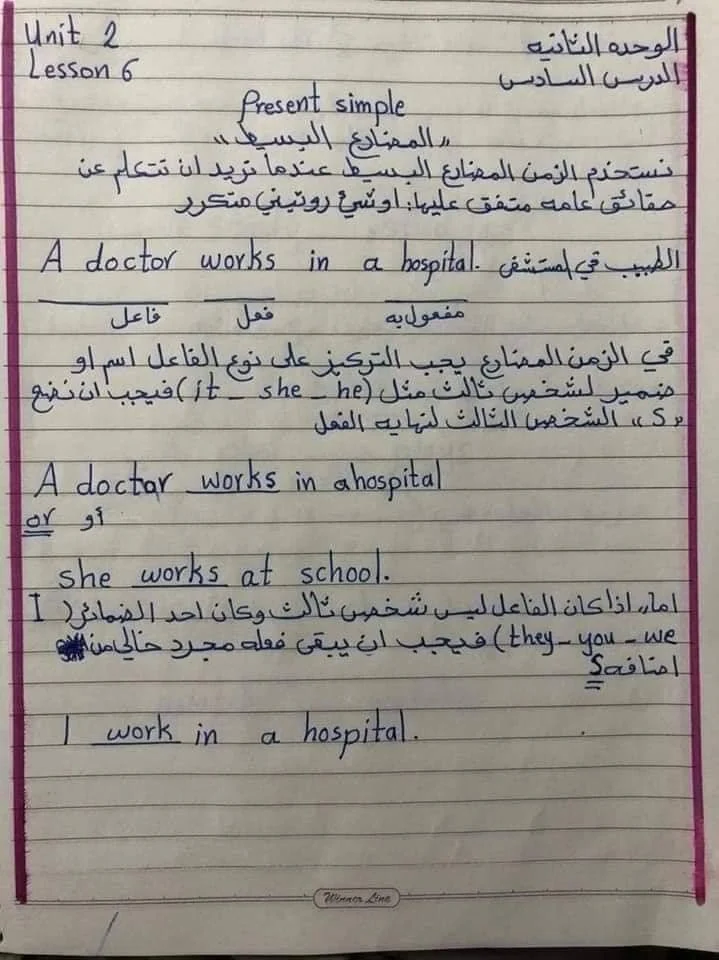 Unit 2 الوحده الثانيه
Lesson 6 الدرس السادس
Present simple
"المضارع البسيط"
نستخدم الزمن المضارع البسيط عندما نريد ان نتكلم عن
حقائق عامه متفق عليها: او شئ روتيني متكرر
A doctor works in a hospital. الطبيب في لمستشفى
فاعل فعل مفعول به
في الزمن المضارع يجب التركيز على نوع الفاعل اسم او
ضمير لشخص ثالث مثل (it - she - he) فيجب ان نضع
"S" الشخص الثالث لنهايه الفعل
A doctor works in ahospital
or أو
she works at school.
اما,, اذا كان الفاعل ليس شخص ثالث وكان احد الضمائر( I
they - you - we) فيجب ان يبقى فعله مجرد خالي من
اضافه S
I work in a hospital.
Winner Line